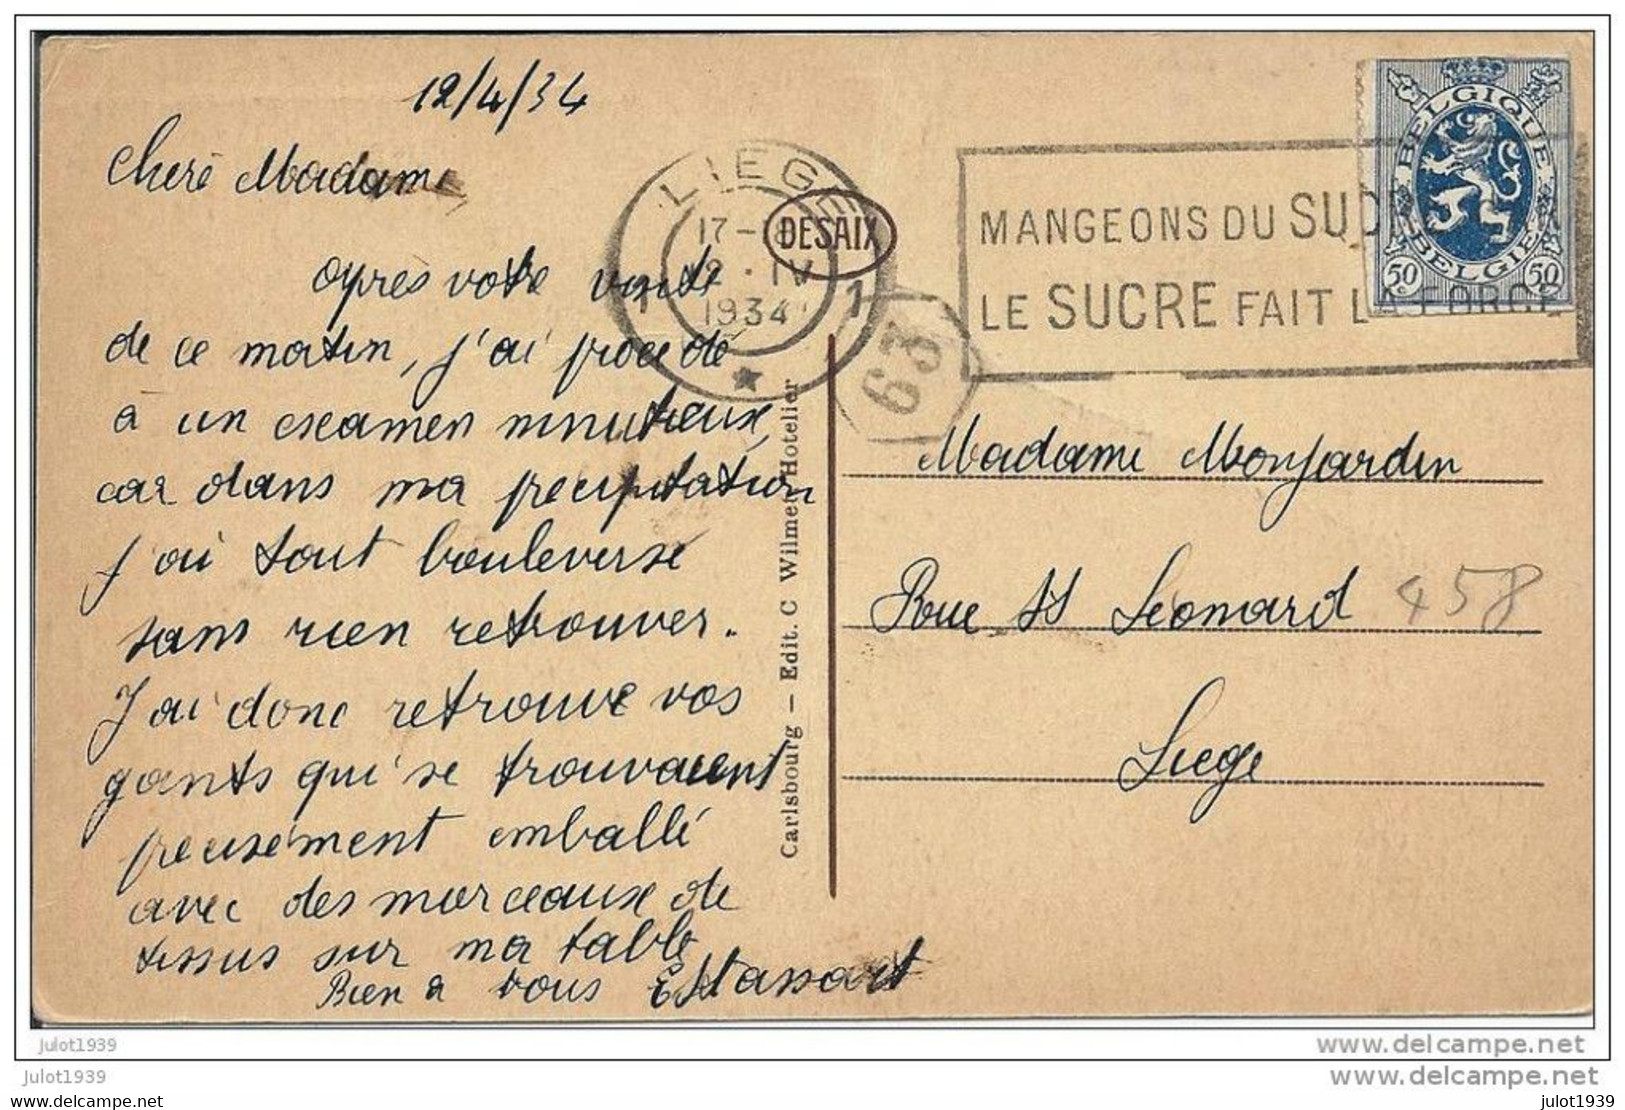 12/4/34
Chère Madame
Après votre visite
de ce matin, j'ai procédé
à un examen minutieux,
car dans ma précipitation
j'ai tout bouleversé
sans rien retrouver.
J'ai donc retrouvé vos
gants qui se trouvaient
pieusement emballé
avec des morceaux de
tissus sur ma table
Bien à vous E Stassart
LIEGE
17-18
12 · IV
1934
1 1
DESAIX
63
MANGEONS DU SUCRE
LE SUCRE FAIT LA FORCE
BELGIQUE
BELGIE
50 50
Carlsbourg — Edit. C Wilmet Hotelier
Madame Monjardin
Rue St Léonard 458
Liege
julot1939
www.delcampe.net
julot1939
www.delcampe.net
julot1939
julot1939